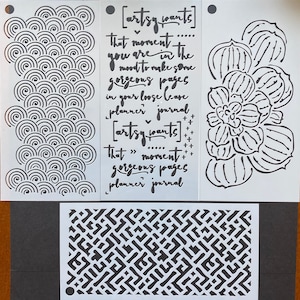 [artsy pants]
that moment .....
you are in the
mood to make some
gorgeous pages
in your loose leave
planner journal
[artsy pants]
that moment
gorgeous pages
planner journal